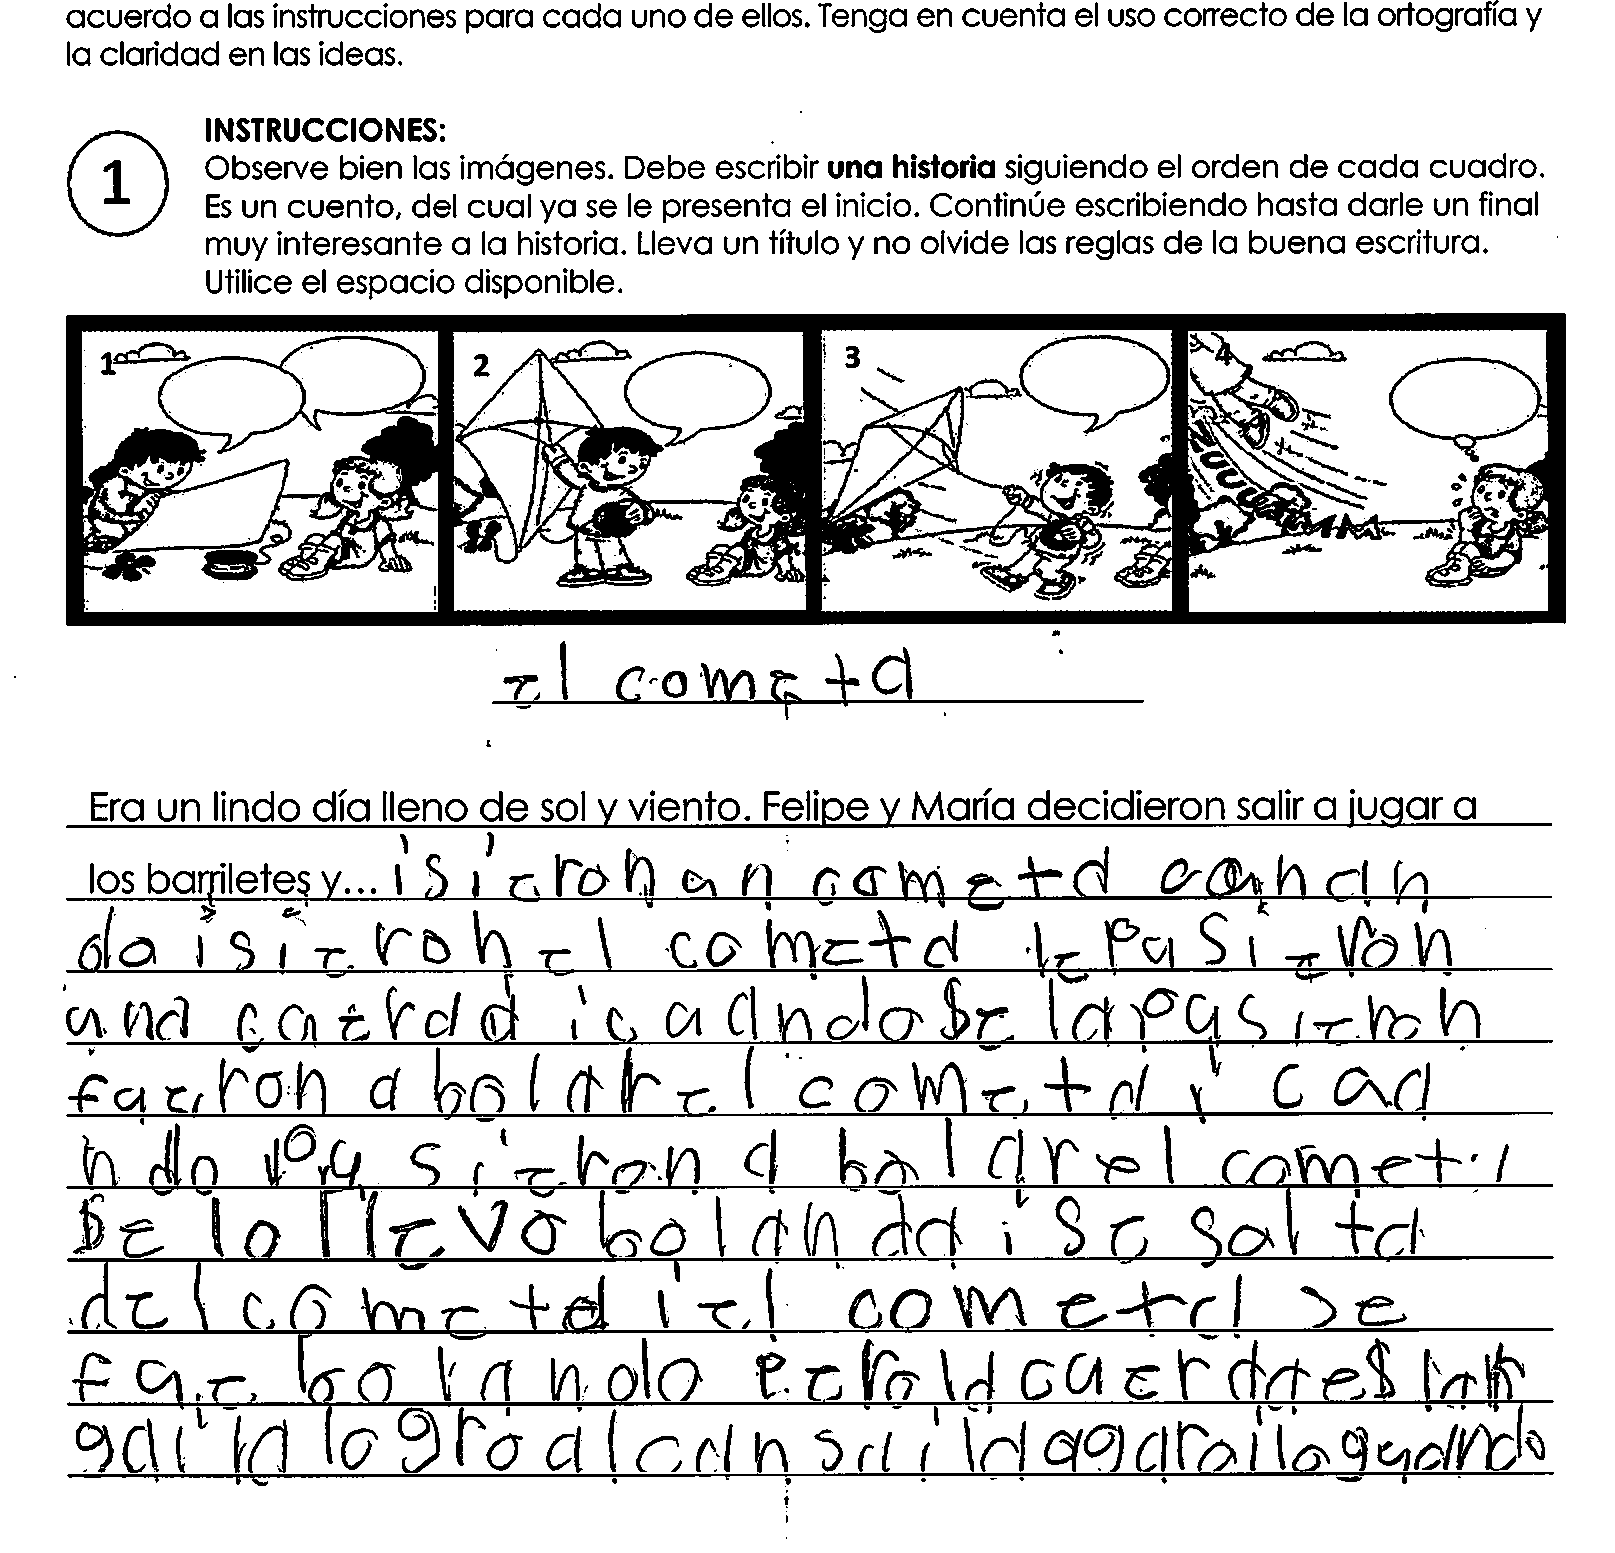 acuerdo a las instrucciones para cada uno de ellos. Tenga en cuenta el uso correcto de la ortografía y
la claridad en las ideas.
INSTRUCCIONES:
1
Observe bien las imágenes. Debe escribir una historia siguiendo el orden de cada cuadro.
Es un cuento, del cual ya se le presenta el inicio. Continúe escribiendo hasta darle un final
muy interesante a la historia. Lleva un título y no olvide las reglas de la buena escritura.
Utilice el espacio disponible.
1 2 3 4
ZUUUUMMM
el cometa
Era un lindo día lleno de sol y viento. Felipe y María decidieron salir a jugar a
los barriletes y... isieron un cometa cuan
do isieron el cometa le pusieron
una cuerda i cuando se la pusieron
fueron a bolar el cometa i cua
ndo pusieron a bolar el comet
se lo llevo bolando i se salta
del cometa i el cometa se
fue bolando pero la cuerda es lar
ga i la logro alcansa i la agaro i lo guando